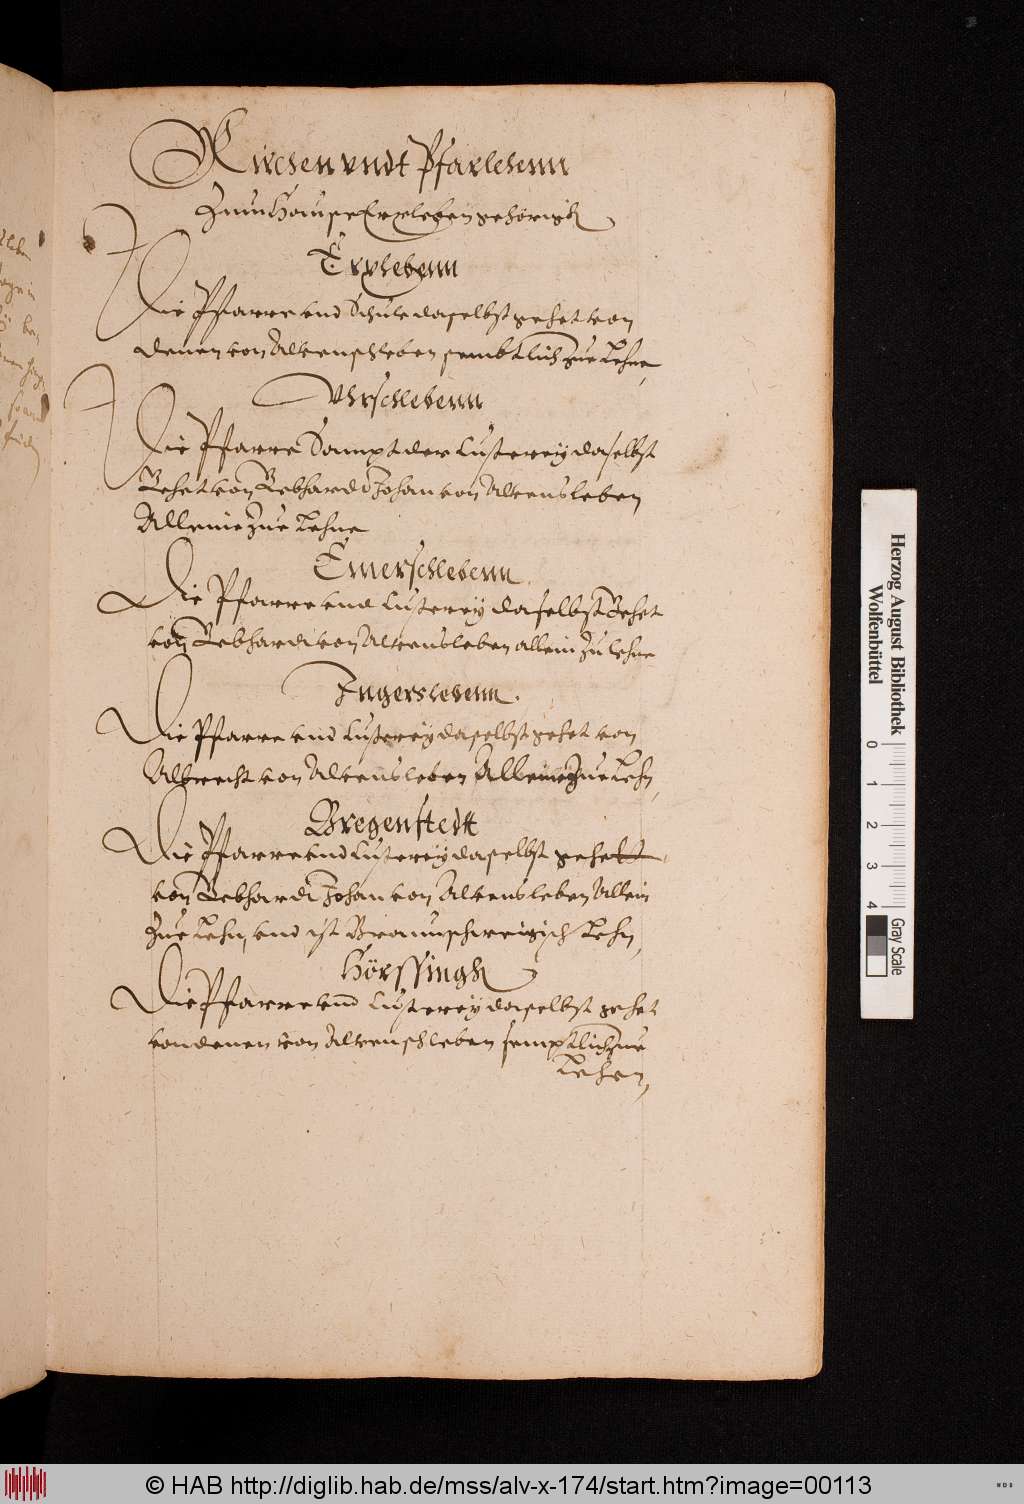 Kirchen vndt Pfarlehenn
Zum Hause Erxleben gehörigk
Erxlebenn
Die Pfarre vnd Schule daselbst gehet von
denen von Alvenschleben sembtlich zue Lehne
Vhrschlebenn
Die Pfarre Sampt der Custerey daselbst
Gehet von Gebhardt Johan von Alvensleben
Alleine zue Lehne
Emerschlebenn
Die Pfarre vnd Custerey daselbst Gehet
von Gebhardt von Alvensleben allein zu lehne
Ingerslebenn.
Die Pfarre vnd Custerey daselbst gehet von
Albrecht von Alvensleben Alleine zue Lehn
Bregenstedt
Die Pfarre vnd Custerey daselbst gehett
von Gebhardt Johan von Alvensleben Allein
Zue Lehn, vnd ist Braunschweigisch Lehn,
Hörssingk
Die Pfarre vnd Custerey daselbst gehet
von denen von Alvenschleben semptlich zue
Lehen,
Herzog August Bibliothek
Wolfenbüttel
0 1 2 3 4
Gray Scale
© HAB http://diglib.hab.de/mss/alv-x-174/start.htm?image=00113